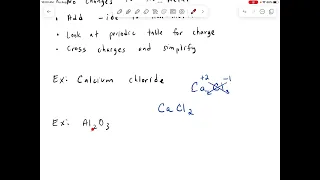 • No changes to
• Add -ide to
• Look at periodic table for charge
• Cross charges and simplify
Ex: Calcium chloride
+2 -1
Ca Cl
Ca Cl2
Ex: Al2O3